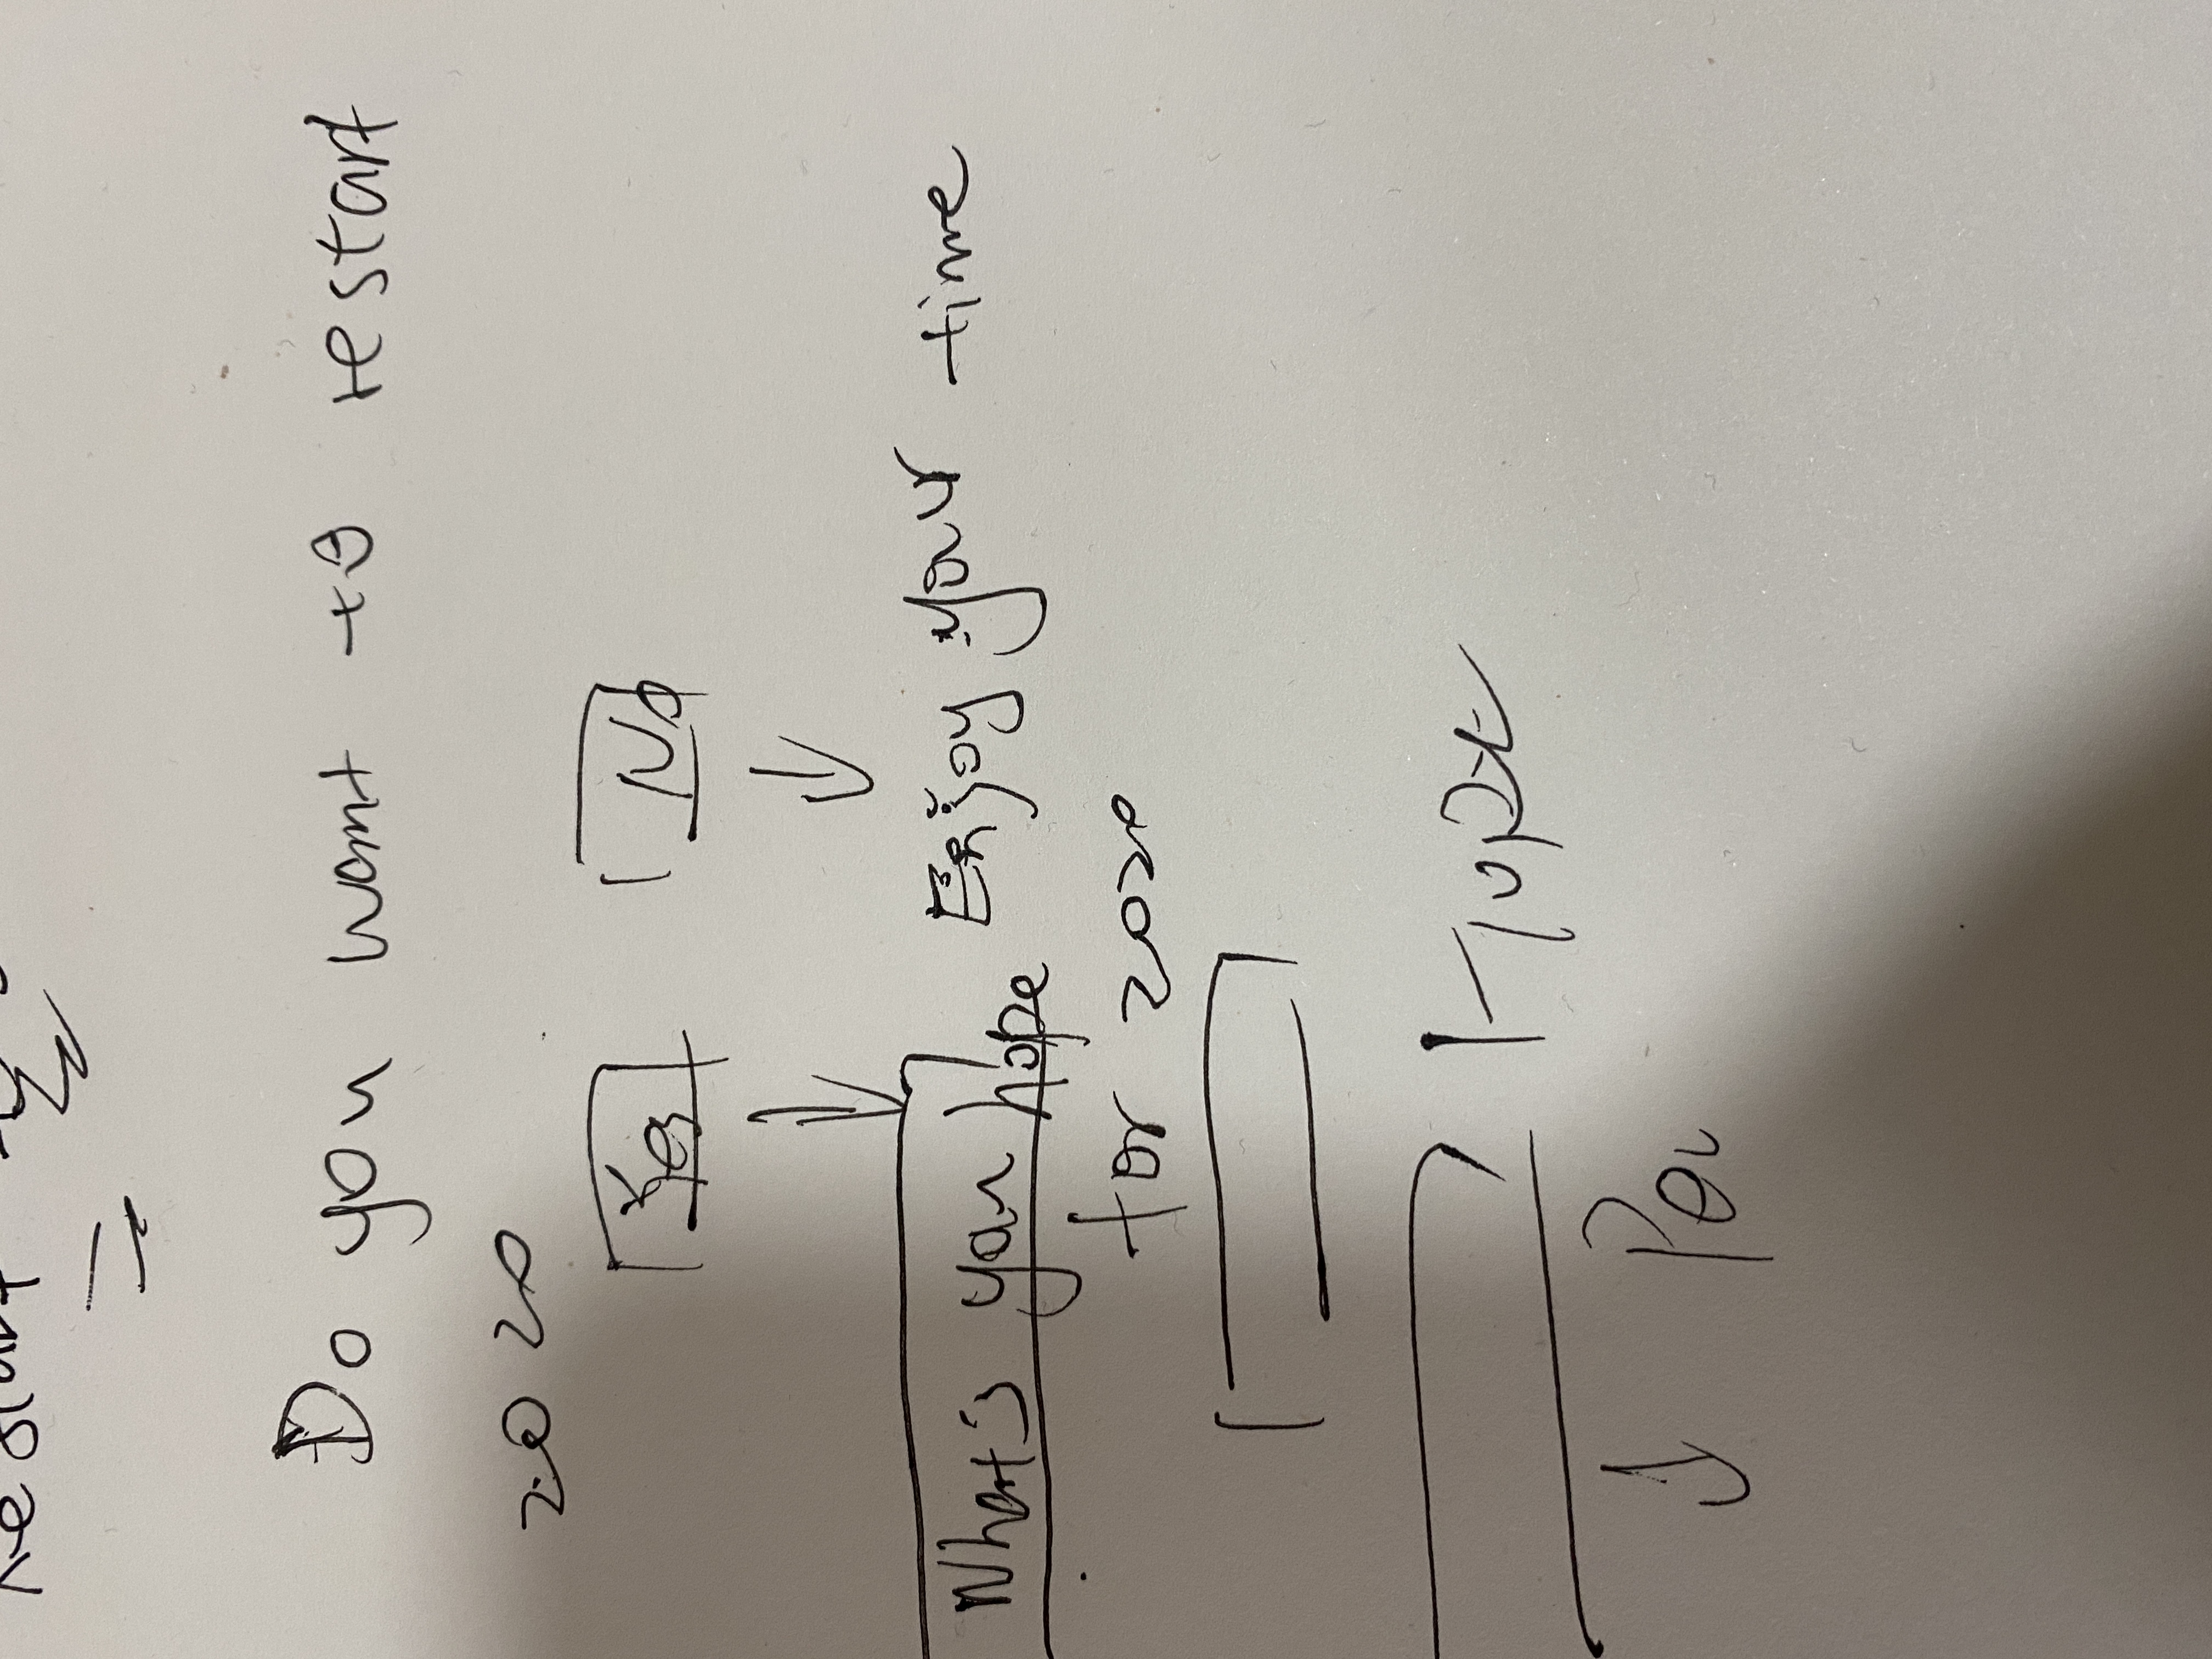 Restart
Do you want to restart
2020
Yes No
What's your hope Enjoy your time
for 2020